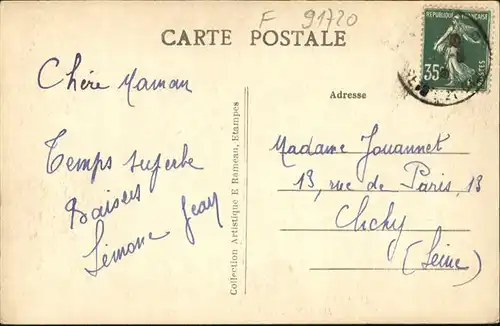 F 91720
CARTE POSTALE
REPUBLIQUE FRANÇAISE
35
POSTES
Chère Maman
Temps superbe
Baisers
Simone Jean
Collection Artistique E Rameau, Etampes
Adresse
Madame Jouannet
13, rue de Paris, 13
Clichy
(Seine)